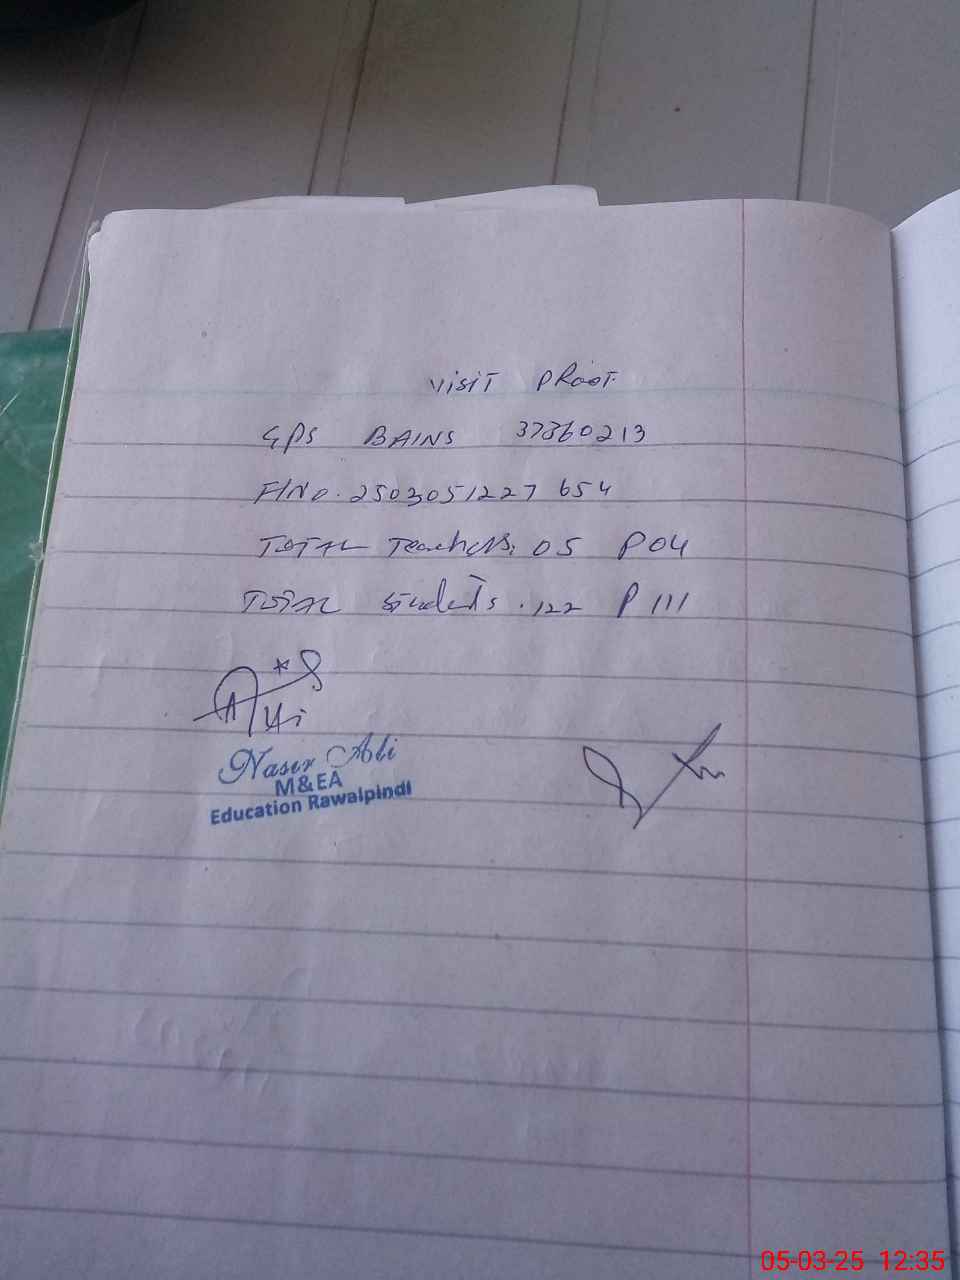 Visit Proof.
GPS BAINS 37360213
F/NO. 2503051227 654
TOTAL Teachers: 05 P 04
TOTAL Students. 122 P 111
Nasir Ali
M&EA
Education Rawalpindi
05-03-25 12:35